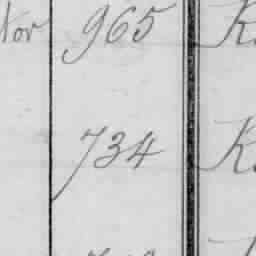 Nov 965 K.
734 K.